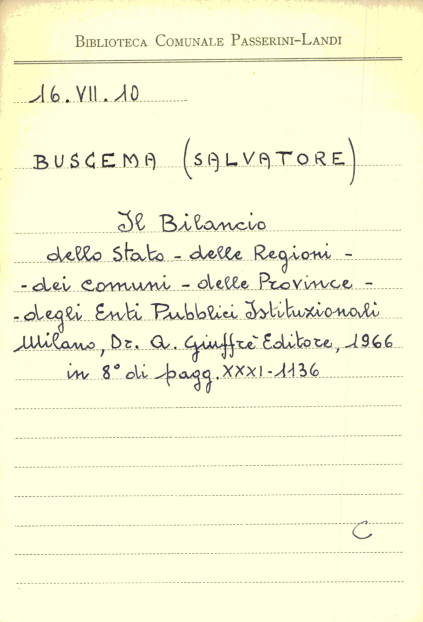 BIBLIOTECA COMUNALE PASSERINI-LANDI
16. VII. 10
BUSCEMA (SALVATORE)
Il Bilancio
dello Stato - delle Regioni -
- dei comuni - delle Province -
- degli Enti Pubblici Istituzionali
Milano, Dr. A. Giuffrè Editore, 1966
in 8° di pagg. XXXI-1136
C